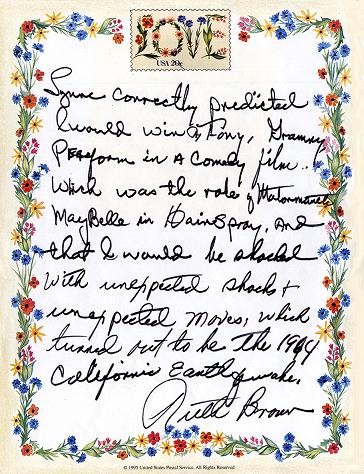 LOVE
USA 20c
Lynne correctly predicted
I would win a Tony, Grammy
Perform in a Comedy film..
Which was the role of Motormouth
MayBelle in Hairspray, And
that I would be shocked
With unexpected shocks +
unexpected moves, which
turned out to be the 1994
California Earthquake.
Ruth Brown
© 1995 United States Postal Service. All Rights Reserved.